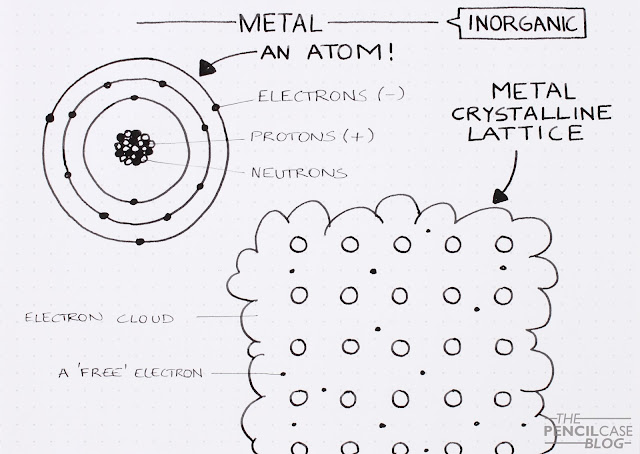 METAL
INORGANIC
AN ATOM!
ELECTRONS (-)
PROTONS (+)
NEUTRONS
METAL
CRYSTALLINE
LATTICE
ELECTRON CLOUD
A 'FREE' ELECTRON
THE
PENCILCASE
BLOG